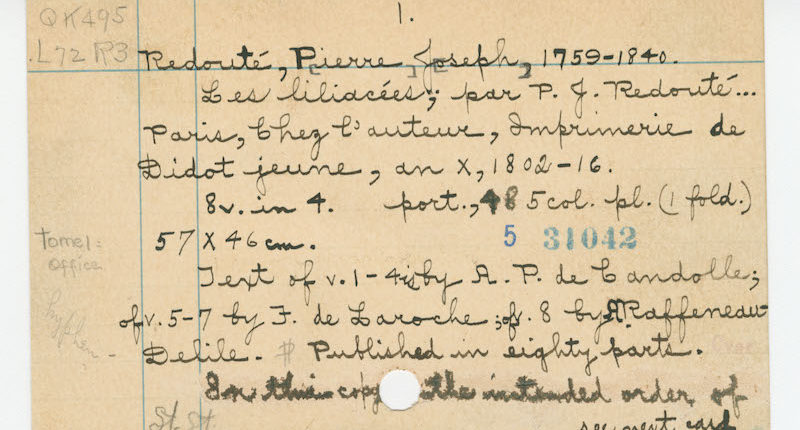 1.
QK495
.L72 R3
Redouté, P[ierre] J[oseph], 1759-1840.
Les liliacées; par P. J. Redouté...
Paris, Chez l'auteur, Imprimerie de
Didot jeune, an X, 1802-16.
8v. in 4. port., 485 col. pl. (1 fold.)
Tome 1:
Office
57 X 46 cm. 5 31042
Text of v. 1-4 is by A. P. de Candolle;
of v. 5-7 by F. de Laroche; of v. 8 by A. Raffeneau-
hyphen -
Delile. # Published in eighty parts.
In this copy the intended order of
St. St.
see next card